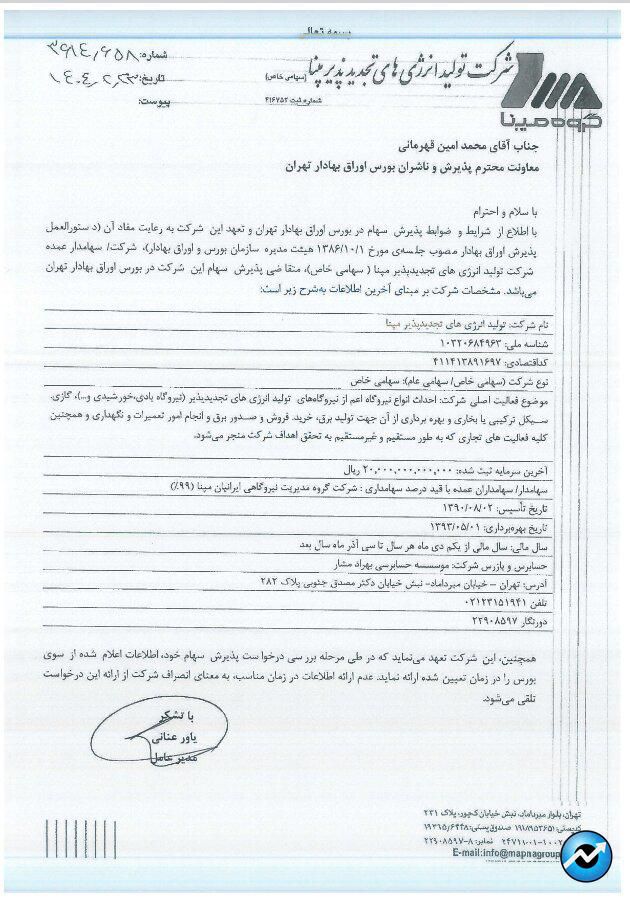 بسمه تعالی
شرکت تولید انرژی های تجدید پذیر مپنا (سهامی خاص)
شماره ثبت ۴۱۶۷۵۲
گروه مپنا
شماره:
تاریخ: ۱۴۰۴/۲/۲۳
پیوست:
جناب آقای محمد امین قهرمانی
معاونت محترم پذیرش و ناشران بورس اوراق بهادار تهران
با سلام و احترام
با اطلاع از شرایط و ضوابط پذیرش سهام در بورس اوراق بهادار تهران و تعهد این شرکت به رعایت مفاد آن (دستورالعمل
پذیرش اوراق بهادار مصوب جلسه‌ی مورخ ۱۳۸۶/۱۰/۱ هیئت مدیره سازمان بورس و اوراق بهادار)، شرکت/ سهامدار عمده
شرکت تولید انرژی های تجدیدپذیر مپنا ( سهامی خاص)، متقاضی پذیرش سهام این شرکت در بورس اوراق بهادار تهران
می‌باشد. مشخصات شرکت بر مبنای آخرین اطلاعات به‌شرح زیر است:
نام شرکت: تولید انرژی های تجدیدپذیر مپنا
شناسه ملی: ۱۰۳۲۰۶۸۴۹۶۳
کداقتصادی: ۴۱۱۴۱۳۸۹۱۶۹۷
نوع شرکت (سهامی خاص/ سهامی عام): سهامی خاص
موضوع فعالیت اصلی شرکت: احداث انواع نیروگاه اعم از نیروگاه‌های تولید انرژی های تجدیدپذیر (نیروگاه بادی،خورشیدی و...)، گازی،
سیکل ترکیبی یا بخاری و بهره برداری از آن جهت تولید برق، خرید، فروش و صدور برق و انجام امور تعمیرات و نگهداری و همچنین
کلیه فعالیت های تجاری که به طور مستقیم و غیرمستقیم به تحقق اهداف شرکت منجر می‌شود.
آخرین سرمایه ثبت شده: ۲۰,۰۰۰,۰۰۰,۰۰۰,۰۰۰ ریال
سهامدار/ سهامداران عمده با قید درصد سهامداری : شرکت گروه مدیریت نیروگاهی ایرانیان مپنا (۹۹٪)
تاریخ تأسیس: ۱۳۹۰/۰۸/۰۲
تاریخ بهره‌برداری: ۱۳۹۳/۰۵/۰۱
سال مالی: سال مالی از یکم دی ماه هر سال تا سی آذر ماه سال بعد
حسابرس و بازرس شرکت: موسسه حسابرسی بهراد مشار
آدرس: تهران – خیابان میرداماد- نبش خیابان دکتر مصدق جنوبی پلاک ۲۸۲
تلفن ۰۲۱۲۳۱۵۱۹۴۱
دورنگار ۲۲۹۰۸۵۹۷
همچنین، این شرکت تعهد می‌نماید که در طی مرحله بررسی درخواست پذیرش سهام خود، اطلاعات اعلام شده از سوی
بورس را در زمان تعیین شده ارائه نماید. عدم ارائه اطلاعات در زمان مناسب، به معنای انصراف شرکت از ارائه این درخواست
تلقی می‌شود.
با تشکر
یاور عنانی
مدیر عامل
تهران، بلوار میرداماد، نبش خیابان کجور، پلاک ۲۳۱
کدپستی: ۱۹۱۸۹۵۳۶۵۱ صندوق پستی: ۱۹۳۹۵/۶۴۴۸
نمابر: ۲۲۹۰۸۵۹۷-۸
E-mail:info@mapnagroup